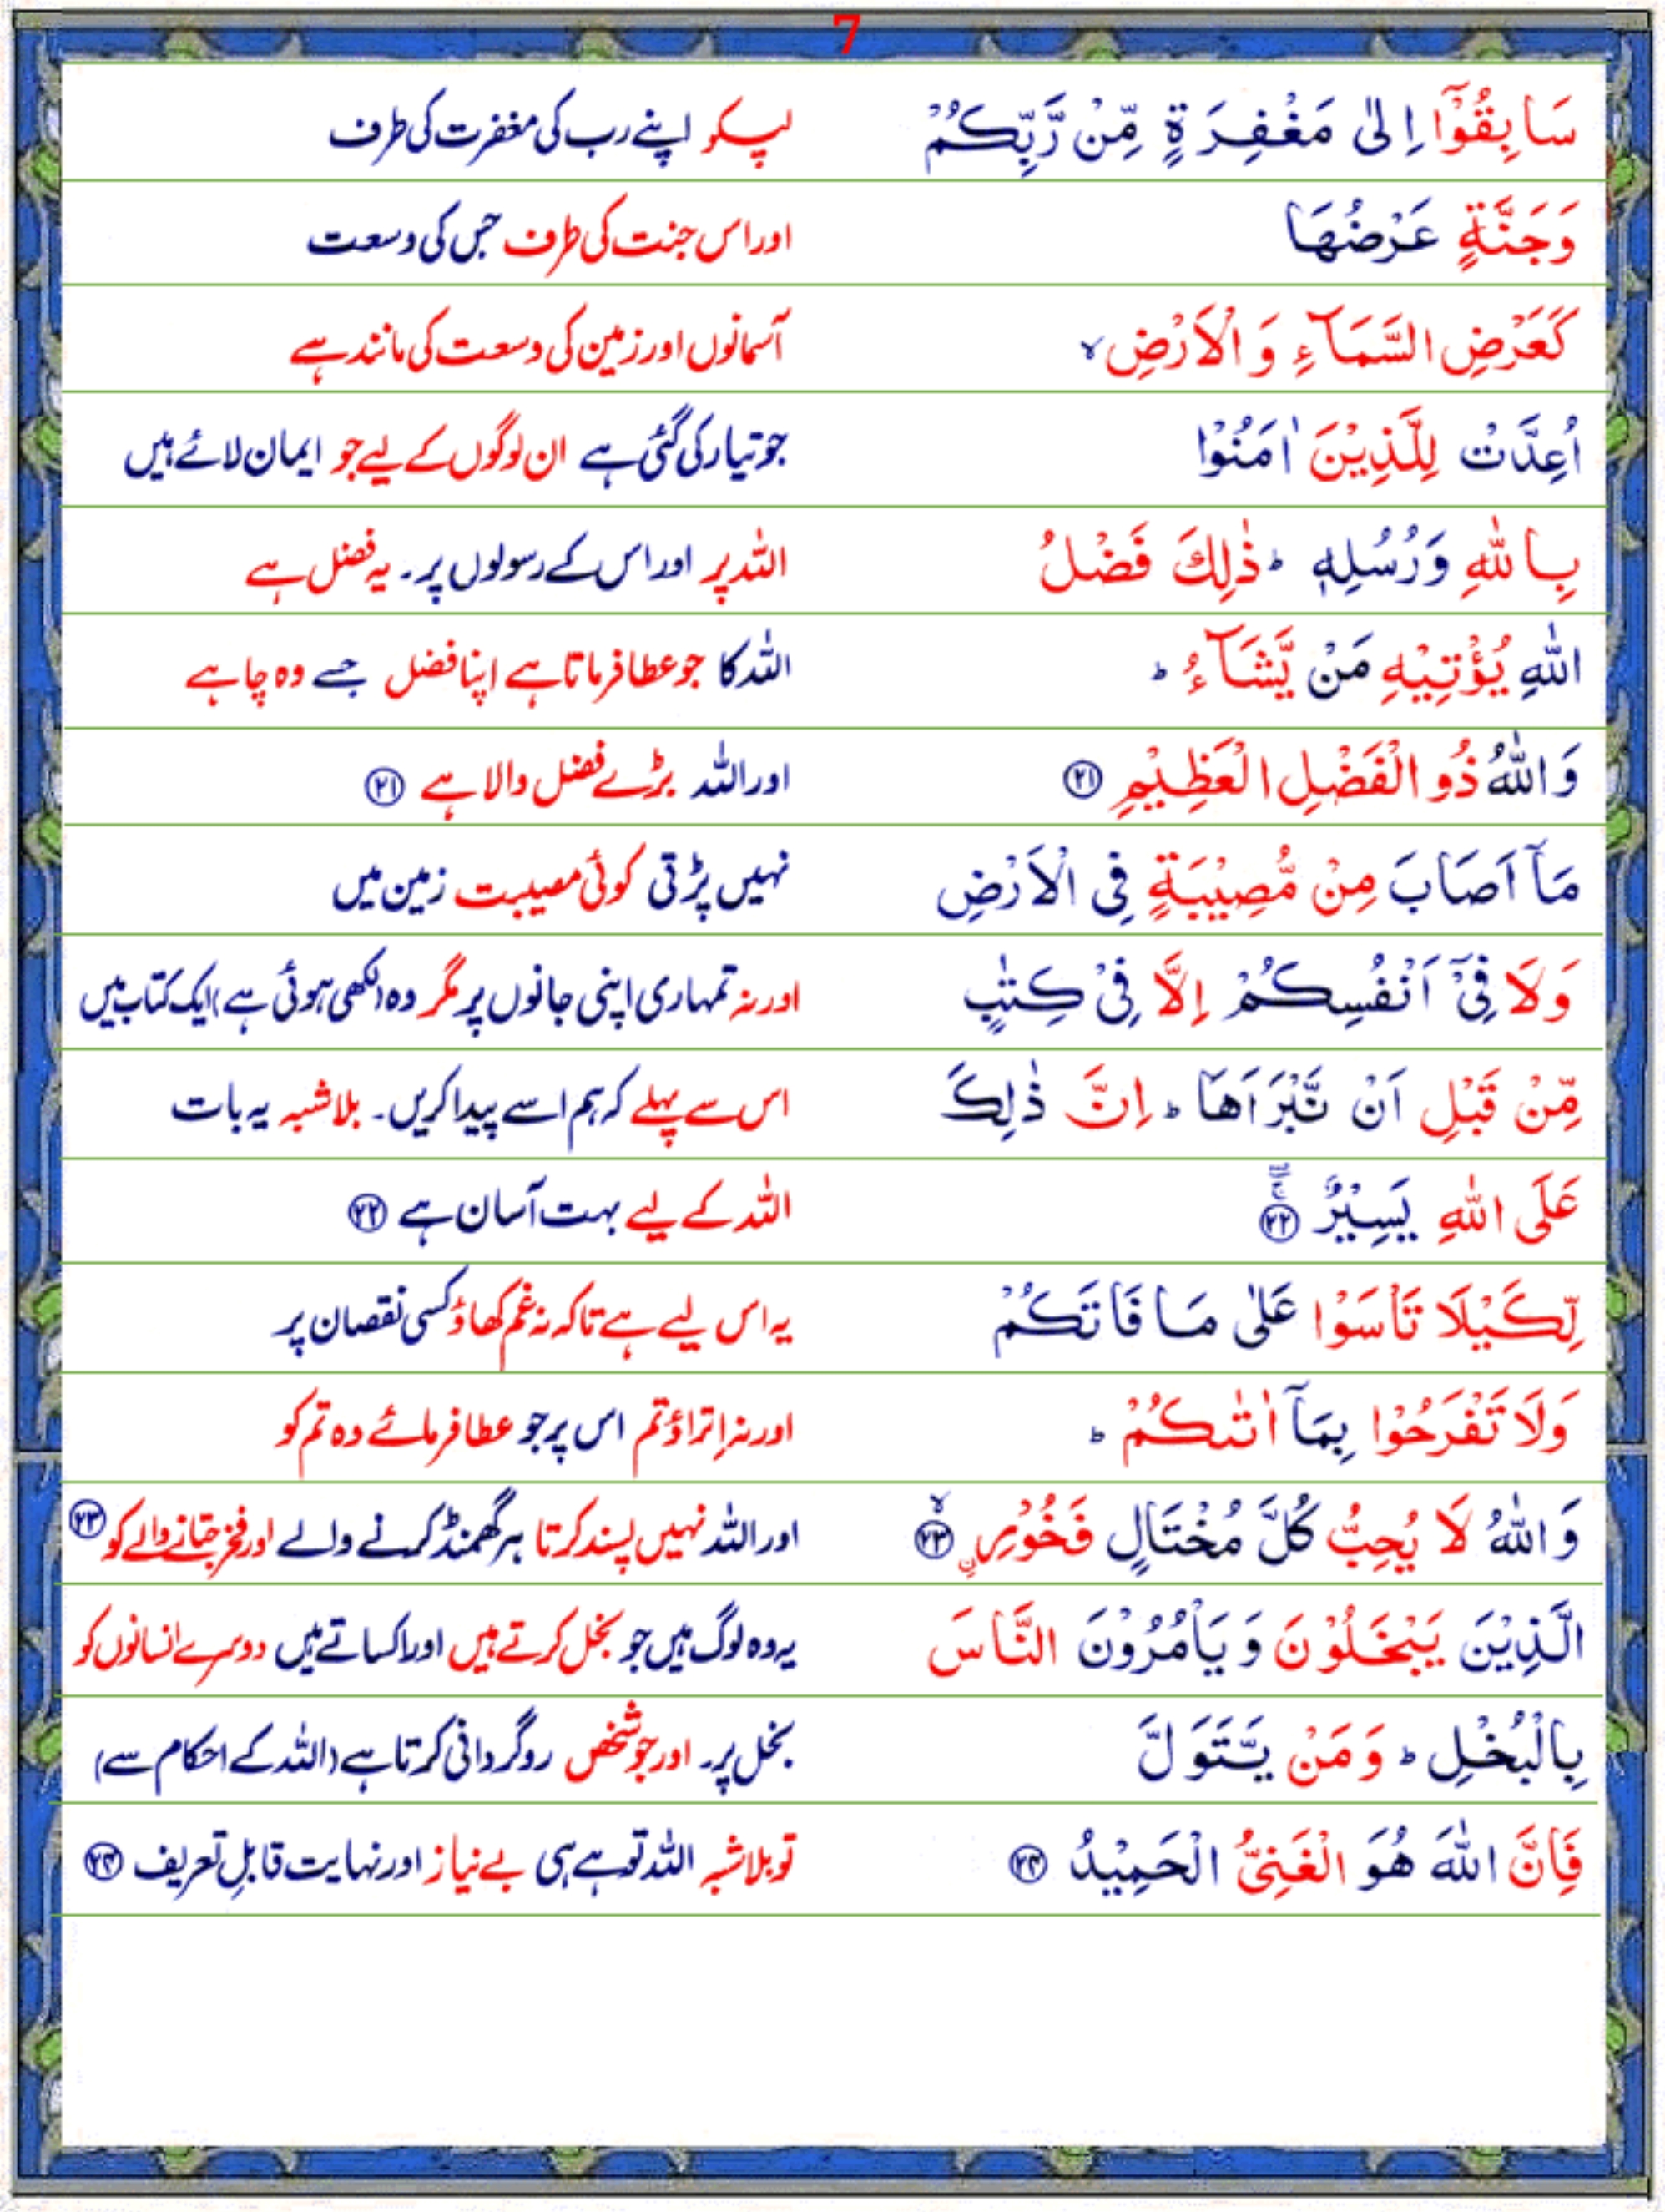 7
سَابِقُوْۤا اِلٰى مَغْفِرَةٍ مِّنْ رَّبِّكُمْ لپکو اپنے رب کی مغفرت کی طرف
وَجَنَّةٍ عَرْضُهَا اور اس جنت کی طرف جس کی وسعت
كَعَرْضِ السَّمَآءِ وَ الْاَرْضِ ۙ آسمانوں اور زمین کی وسعت کی مانند ہے
اُعِدَّتْ لِلَّذِيْنَ اٰمَنُوْا جو تیار کی گئی ہے ان لوگوں کے لیے جو ایمان لائے ہیں
بِاللّٰهِ وَرُسُلِهٖ ؕ ذٰلِكَ فَضْلُ اللہ پر اور اس کے رسولوں پر۔ یہ فضل ہے
اللّٰهِ يُؤْتِيْهِ مَنْ يَّشَآءُ ؕ اللہ کا جو عطا فرماتا ہے اپنا فضل جسے وہ چاہے
وَاللّٰهُ ذُو الْفَضْلِ الْعَظِيْمِ ﴿۲۱﴾ اور اللہ بڑے فضل والا ہے ﴿۲۱﴾
مَاۤ اَصَابَ مِنْ مُّصِيْبَةٍ فِى الْاَرْضِ نہیں پڑتی کوئی مصیبت زمین میں
وَلَا فِىْۤ اَنْفُسِكُمْ اِلَّا فِىْ كِتٰبٍ اور نہ تمہاری اپنی جانوں پر مگر وہ (لکھی ہوئی ہے) ایک کتاب میں
مِّنْ قَبْلِ اَنْ نَّبْرَاَهَا ؕ اِنَّ ذٰلِكَ اس سے پہلے کہ ہم اسے پیدا کریں۔ بلا شبہ یہ بات
عَلَى اللّٰهِ يَسِيْرٌ ﴿۲۲﴾ اللہ کے لیے بہت آسان ہے ﴿۲۲﴾
لِّكَيْلَا تَاْسَوْا عَلٰى مَا فَاتَكُمْ یہ اس لیے ہے تاکہ نہ غم کھاؤ کسی نقصان پر
وَلَا تَفْرَحُوْا بِمَاۤ اٰتٰٮكُمْ ؕ اور نہ اِتراؤ تم اس پر جو عطا فرمائے وہ تم کو
وَاللّٰهُ لَا يُحِبُّ كُلَّ مُخْتَالٍ فَخُوْرِ ۙ ﴿۲۳﴾ اور اللہ نہیں پسند کرتا ہر گھمنڈ کرنے والے اور فخر جتانے والے کو ﴿۲۳﴾
الَّذِيْنَ يَبْخَلُوْنَ وَيَاْمُرُوْنَ النَّاسَ یہ وہ لوگ ہیں جو بخل کرتے ہیں اور اکساتے ہیں دوسرے انسانوں کو
بِالْبُخْلِ ؕ وَمَنْ يَّتَوَلَّ بخل پر۔ اور جو شخص روگردانی کرتا ہے (اللہ کے احکام سے)
فَاِنَّ اللّٰهَ هُوَ الْغَنِىُّ الْحَمِيْدُ ﴿۲۴﴾ تو بلا شبہ اللہ تو ہے ہی بے نیاز اور نہایت قابلِ تعریف ﴿۲۴﴾